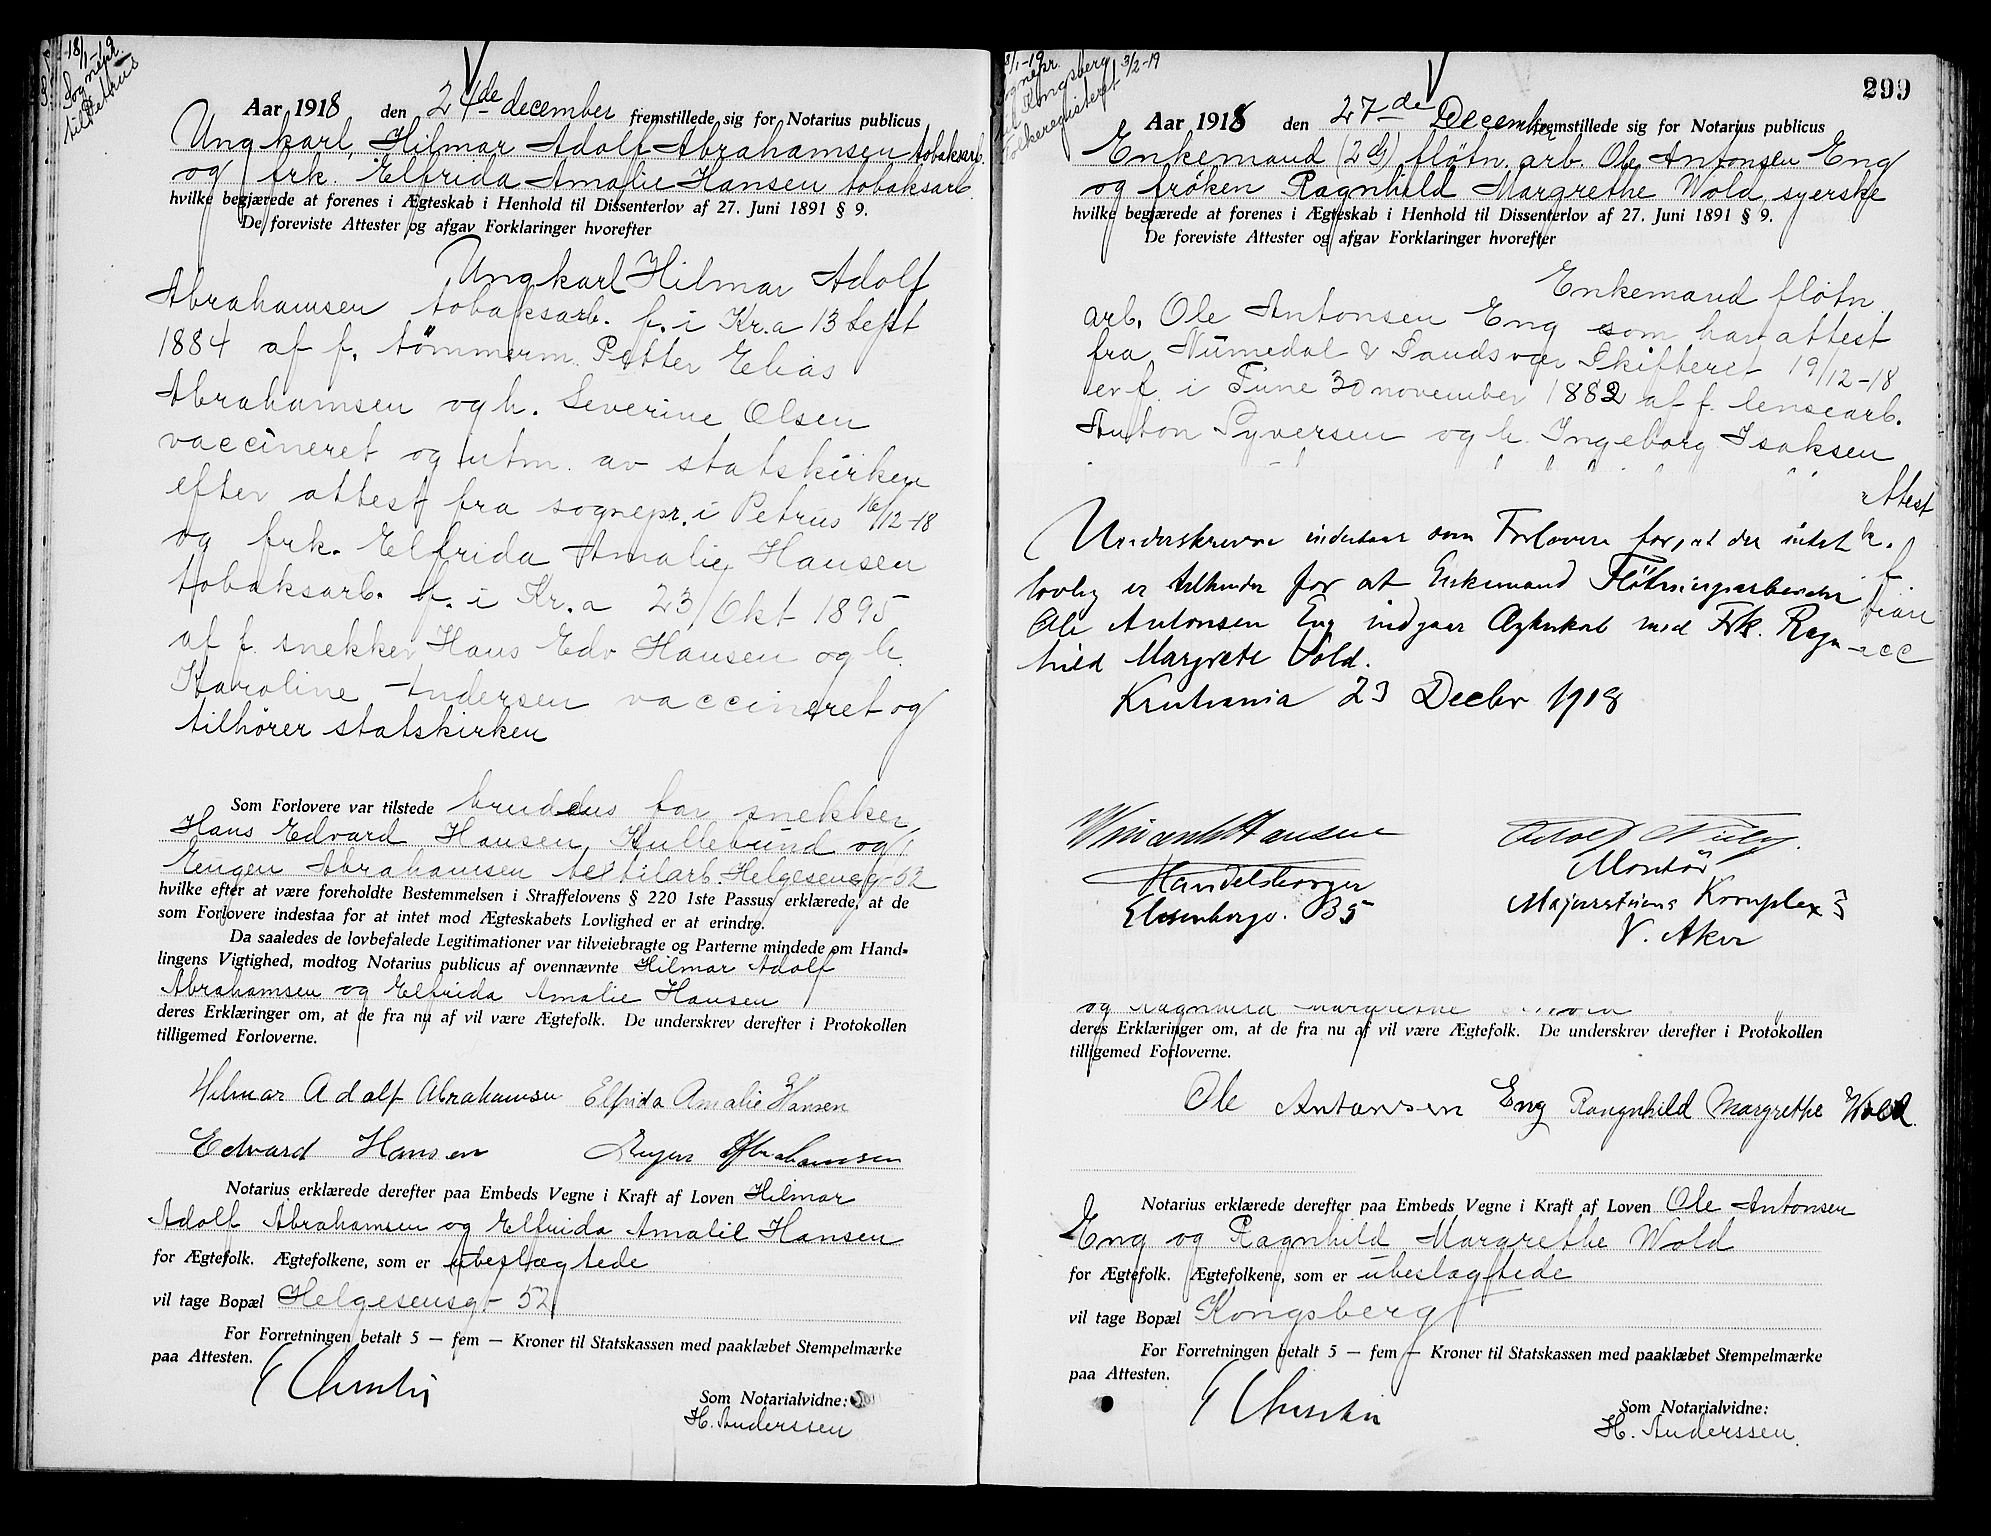 18/1-19.
Sognepr.
til Petrus
Aar 1918 den 24de december fremstillede sig for Notarius publicus
Ungkarl, Hilmar Adolf Abrahamsen tobaksarb.
og frk. Elfrida Amalie Hansen tobaksarb.
hvilke begjærede at forenes i Ægteskab i Henhold til Dissenterlov af 27. Juni 1891 § 9.
De foreviste Attester og afgav Forklaringer hvorefter
Ungkarl Hilmar Adolf
Abrahamsen tobaksarb. f. i Kr.a 13 Sept
1884 af f. tömmerm. Petter Elias
Abrahamsen og h. Severine Olsen
vaccineret og utm. av statskirken
efter attest fra sognepr. i Petrus 16/12-18
og frk. Elfrida Amalie Hansen
tobaksarb. f. i Kr.a 23/Okt 1895
af f. snekker Hans Edv Hansen og h.
Karoline Andersen vaccineret og
tilhører statskirken
Som Forlovere var tilstede brudens far snekker
Hans Edvard Hansen, Hullebund og
Eugen Abrahamsen textilarb. Helgesensg-52
hvilke efter at være foreholdte Bestemmelsen i Straffelovens § 220 1ste Passus erklærede, at de
som Forlovere indestaa for at intet mod Ægteskabets Lovlighed er at erindre.
Da saaledes de lovbefalede Legitimationer var tilveiebragte og Parterne mindede om Hand-
lingens Vigtighed, modtog Notarius publicus af ovennævnte Hilmar Adolf
Abrahamsen og Elfrida Amalie Hansen
deres Erklæringer om, at de fra nu af vil være Ægtefolk. De underskrev derefter i Protokollen
tilligemed Forloverne.
Hilmar Adolf Abrahamsen Elfrida Amalie Hansen
Edvard Hansen Eugen Abrahamsen
Notarius erklærede derefter paa Embeds Vegne i Kraft af Loven Hilmar
Adolf Abrahamsen og Elfrida Amalie Hansen
for Ægtefolk. Ægtefolkene, som er ubeslægtede
vil tage Bopæl Helgesensg- 52
For Forretningen betalt 5 — fem — Kroner til Statskassen med paaklæbet Stempelmærke
paa Attesten.
Som Notarialvidne:
H. Anderssen
299
8/1-19
Sognepr.
til Kongsberg
Folkeregisteret 3/2-19
Aar 1918 den 27de December fremstillede sig for Notarius publicus
Enkemand (2g) fløtn. arb. Ole Antonsen Eng
og frøken Ragnhild Margrethe Wold, syerske
hvilke begjærede at forenes i Ægteskab i Henhold til Dissenterlov af 27. Juni 1891 § 9.
De foreviste Attester og afgav Forklaringer hvorefter
Enkemand fløtn.
arb. Ole Antonsen Eng som har attest
fra Numedal & Sandsvær Skifteret 19/12-18
er f. i Tune 30 november 1882 af f. lensearb.
Anton Syversen og h. Ingeborg Isaksen
Attest
Underskrevne indestaar som Forlovere for, at der intet
lovlig er tilhinder for at Enkemand Fløtningsarbeider
Ole Antonsen Eng indgaar Ægteskab med Frk. Ragn-
hild Margrete Vold.
Kristiania 23 Decbr 1918
Hansen
Handelsborger
Elisenbergv. 35
Adolf
Montör
Majorstuens Komplex 3
V. Aker
og Ragnhild Margrethe
deres Erklæringer om, at de fra nu af vil være Ægtefolk. De underskrev derefter i Protokollen
tilligemed Forloverne.
Ole Antonsen Eng Rangnhild Margrethe Wold.
Notarius erklærede derefter paa Embeds Vegne i Kraft af Loven Ole Antonsen
Eng og Ragnhild Margrethe Wold
for Ægtefolk. Ægtefolkene, som er ubeslagtede
vil tage Bopæl Kongsberg
For Forretningen betalt 5 — fem — Kroner til Statskassen med paaklæbet Stempelmærke
paa Attesten.
Som Notarialvidne:
H. Anderssen.